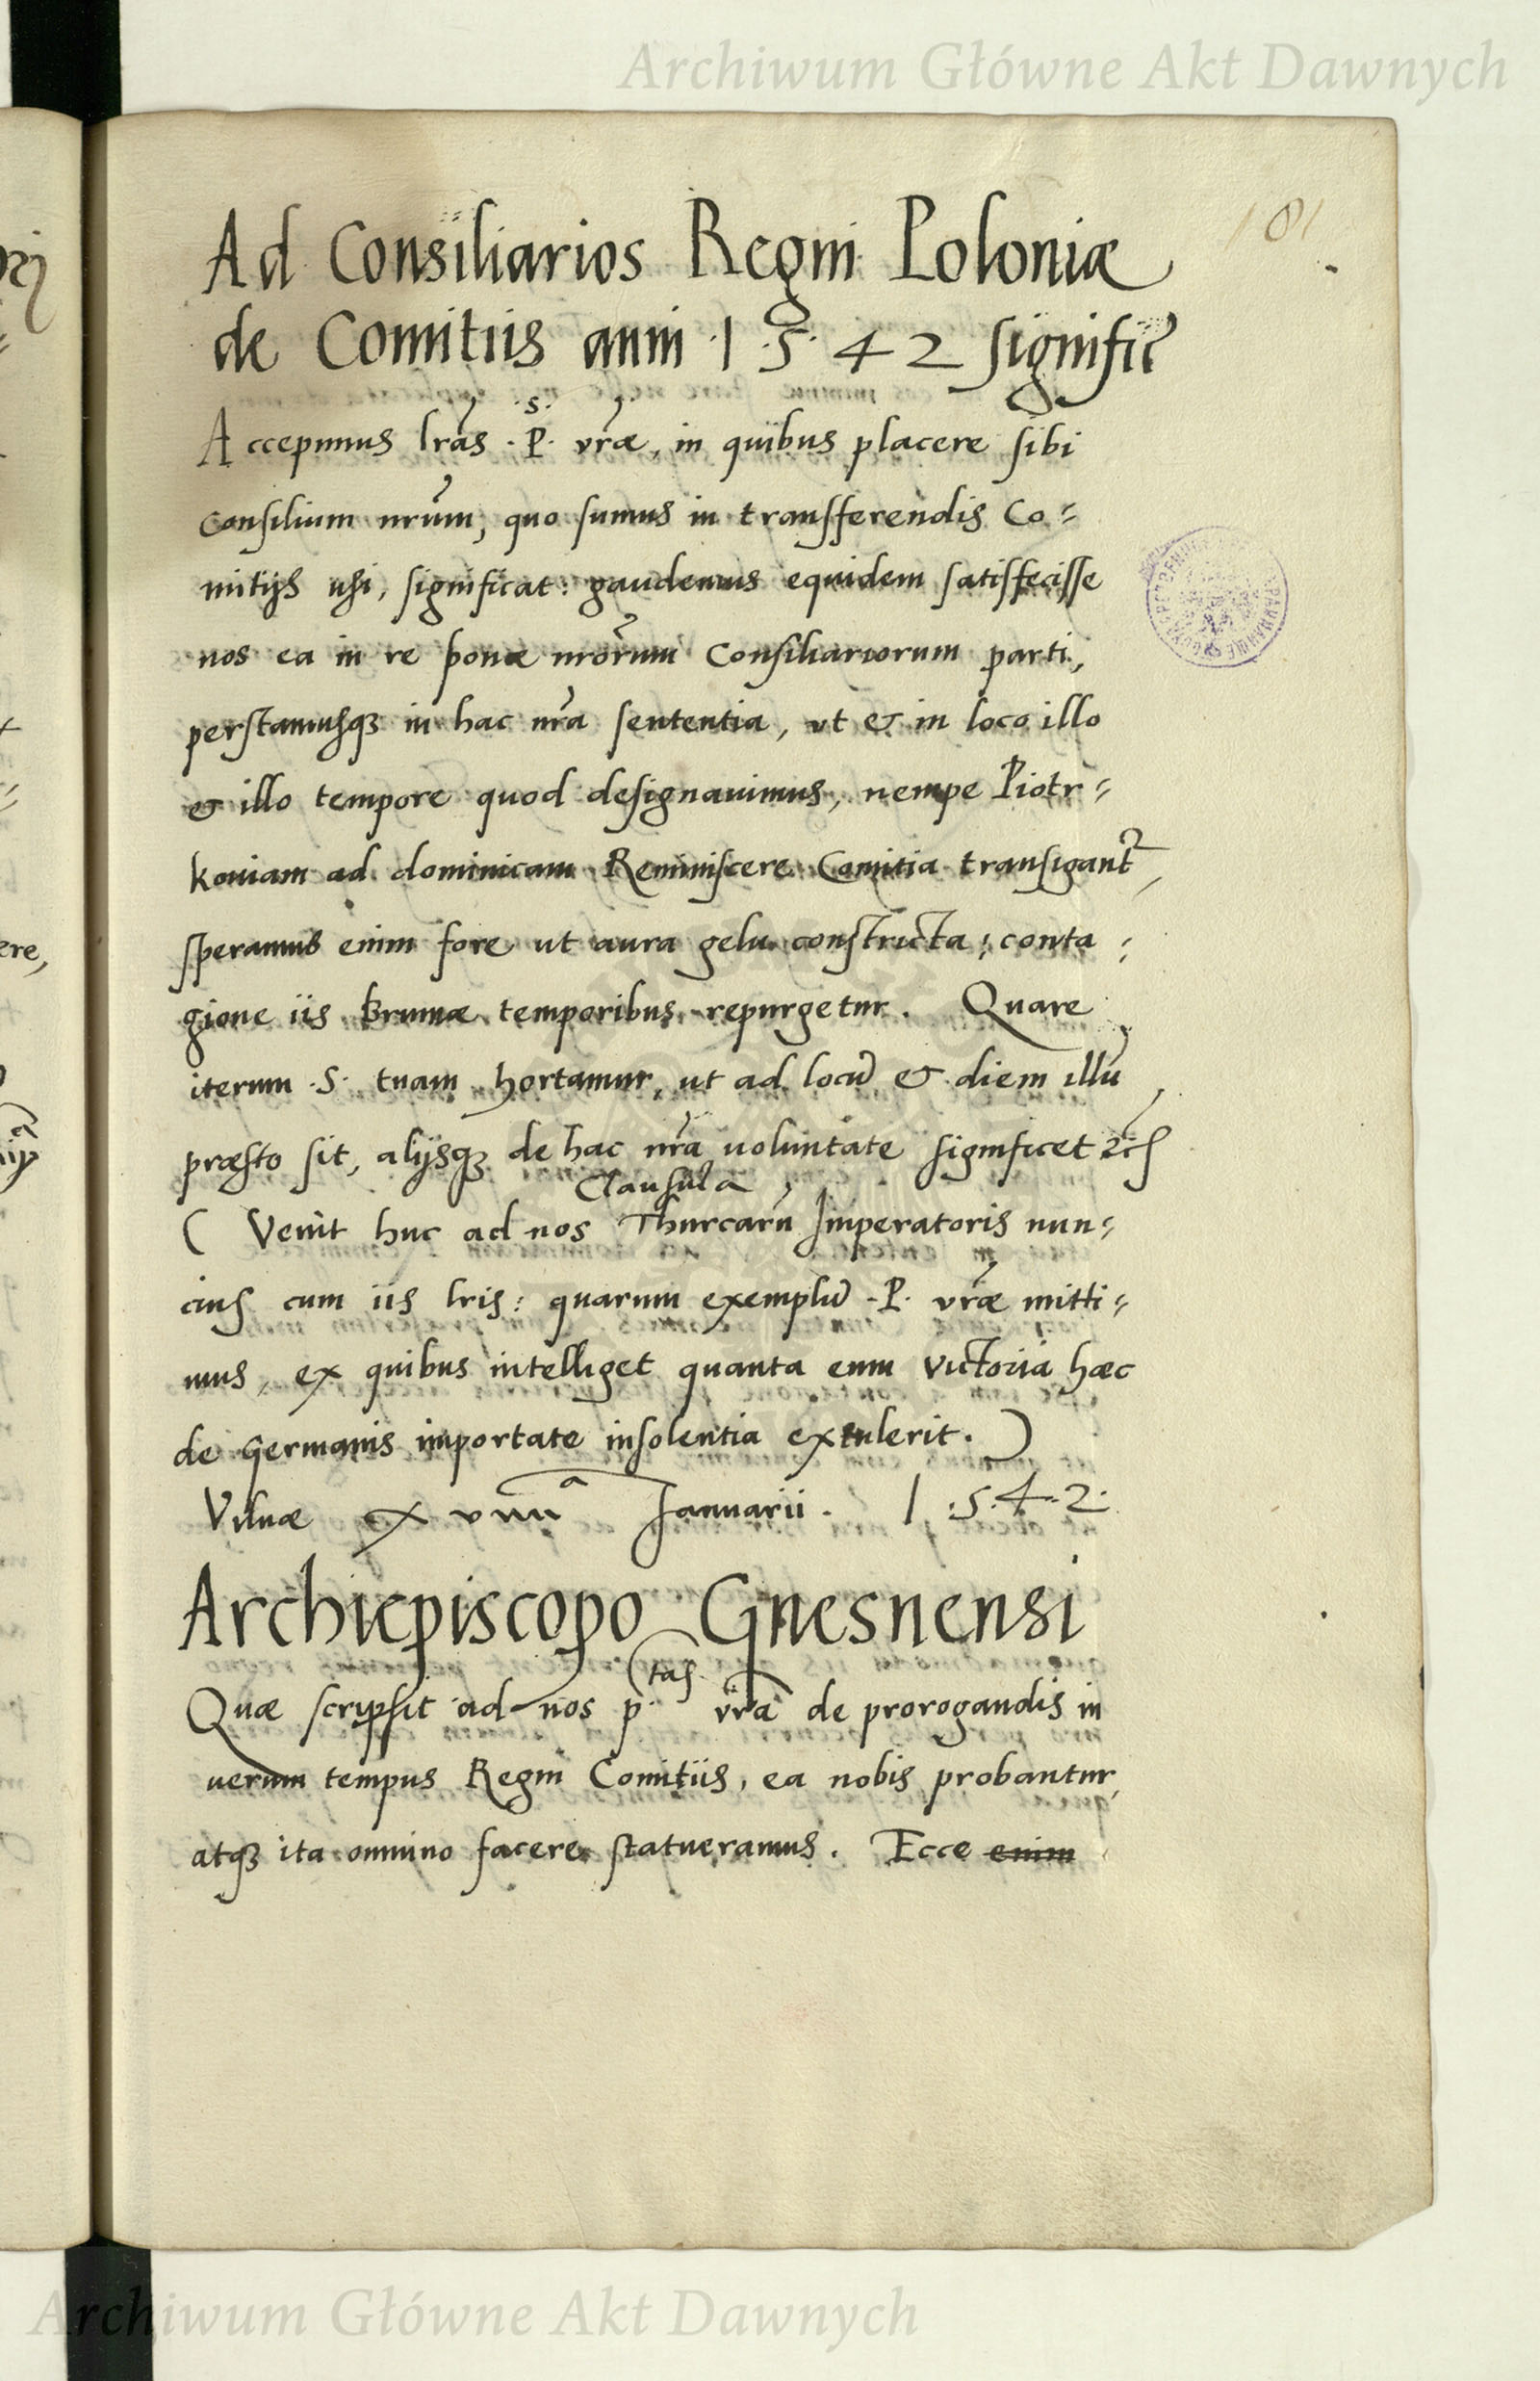 Archiwum Główne Akt Dawnych
181
Ad Consiliarios Regni Poloniæ
de Comitiis anni 1542 signific̃
.S.
Accepimus lrãs .P. vr̃æ, in quibus placere sibi
Consilium nrũm, quo sumus in transferendis Co=
mitijs usi, significat: gaudemus equidem satisfecisse
nos ea in re bonæ nrõrum Consiliariorum parti,
perstamusqȝ in hac nrã sententia, vt & in loco illo
& illo tempore quod designauimus, nempe Piotr=
kouiam ad dominicam Reminiscere Comitia transigant̃,
speramus enim fore ut aura gelu constricta, conta=
gione iis brumæ temporibus repurgetur. Quare
iterum .S. tuam hortamur, ut ad locũ & diem illũ
præsto sit, alijsqȝ de hac nrã uoluntate significet
Clausula
( Venit huc ad nos Thurcarũ Imperatoris nun=
cius cum iis lris: quarum exemplũ .P. vr̃æ mitti=
mus, ex quibus intelliget quanta eum victoria hæc
de Germanis importate insolentia extulerit. )
Vilnæ x viiiᵃ Januarii. 1.5.4.2.
Archiepiscopo Gnesnensi
tas
Quæ scripsit ad nos p. vrã de prorogandis in
uerum tempus Regni Comitiis, ea nobis probantur,
atqȝ ita omnino facere statueramus. Ecce enim
Archiwum Główne Akt Dawnych